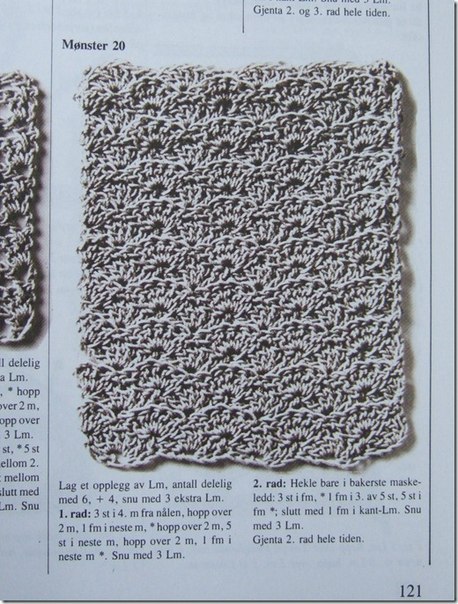 kant Lm. Snu med 3 Lm.
Gjenta 2. og 3. rad hele tiden.
Mønster 20
ll delelig
a Lm.
, * hopp
over 2 m,
opp over
3 Lm.
st, *5 st
mellom 2.
t mellom
slutt med
Lm. Snu
Lag et opplegg av Lm, antall delelig
med 6, + 4, snu med 3 ekstra Lm.
1. rad: 3 st i 4. m fra nålen, hopp over
2 m, 1 fm i neste m, * hopp over 2 m, 5
st i neste m, hopp over 2 m, 1 fm i
neste m *. Snu med 3 Lm.
2. rad: Hekle bare i bakerste maske-
ledd: 3 st i fm, * 1 fm i 3. av 5 st, 5 st i
fm *; slutt med 1 fm i kant-Lm. Snu
med 3 Lm.
Gjenta 2. rad hele tiden.
121